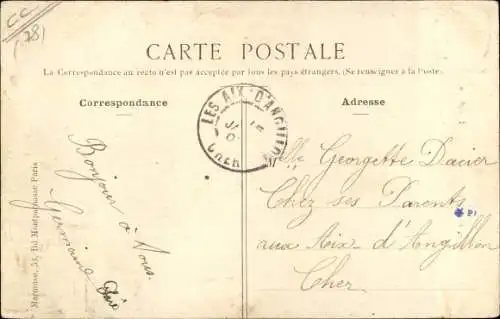 CC
(78)
CARTE POSTALE
La Correspondance au recto n'est pas acceptée par tous les pays étrangers. (Se renseigner à la Poste)
Correspondance
Adresse
LES AIX-D'ANGILLON
CHER
Bonjour à Vous.
Germaine
Mlle Georgette Dacier
Chez ses Parents
aux Aix-d'Angillon
Cher
Marmuse, 54, Bd Montparnasse Paris